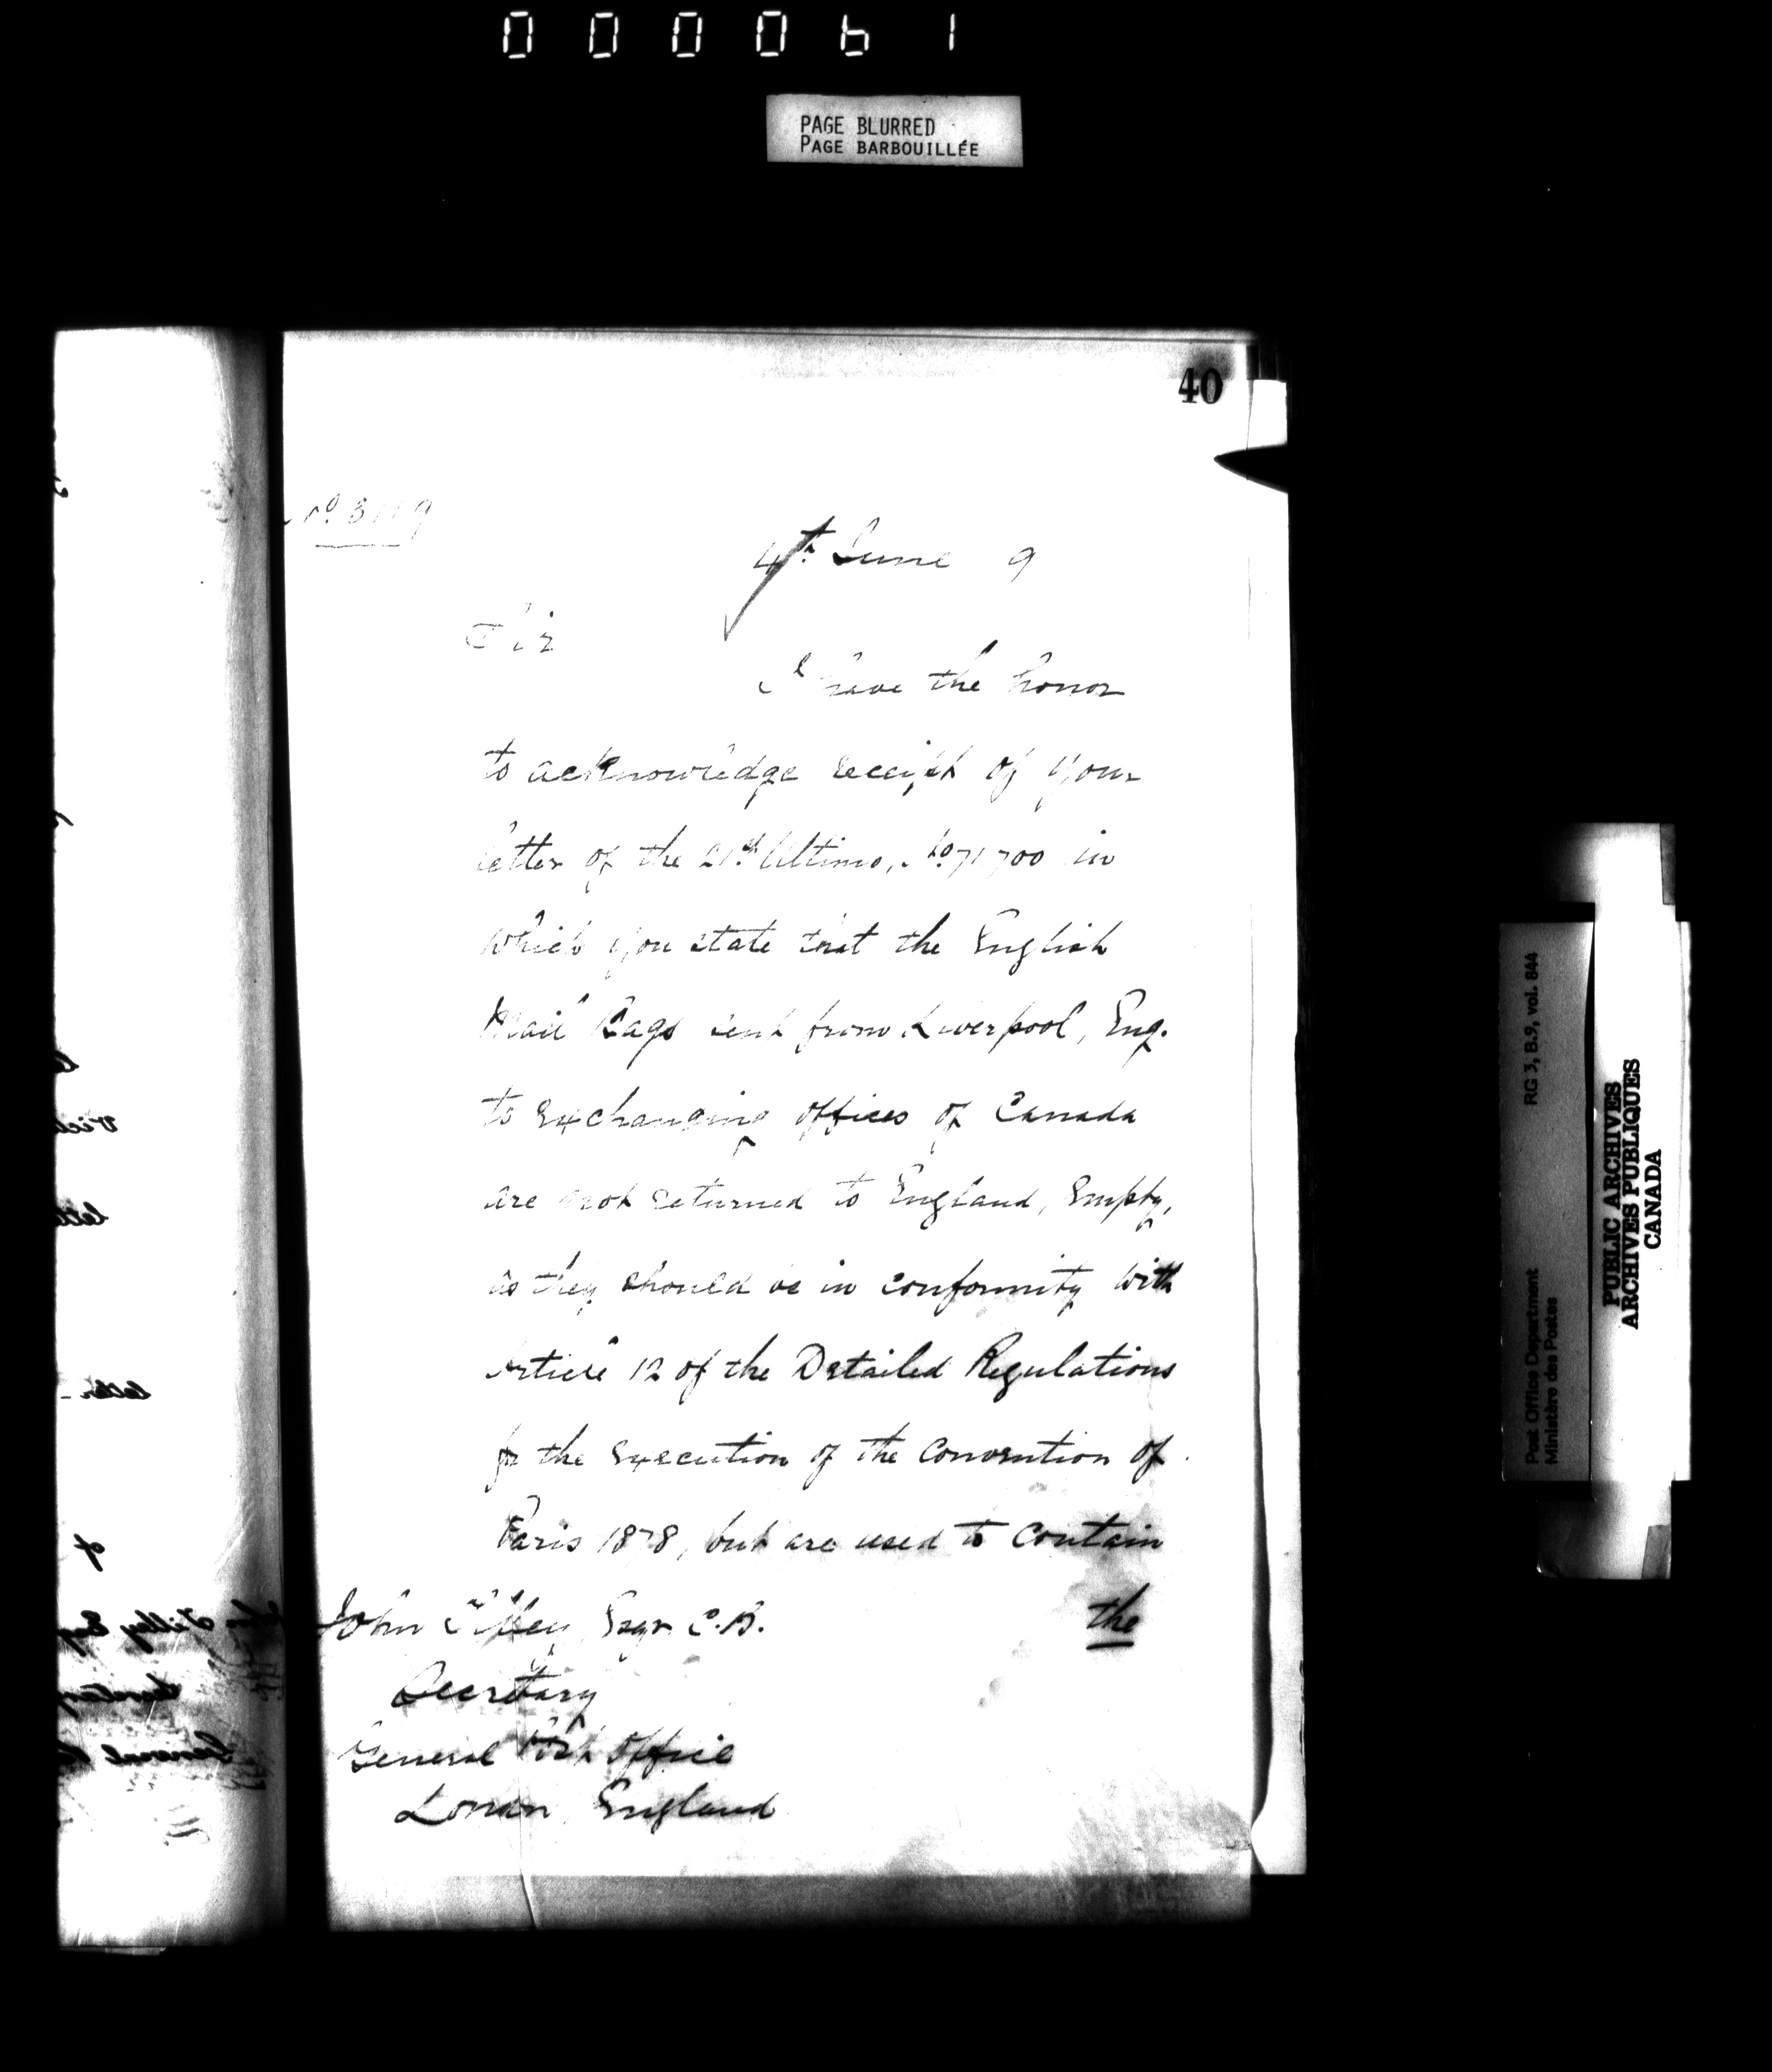 000061
PAGE BLURRED
PAGE BARBOUILLÉE
40
No.
4th June 9
Sir
I have the honor
to acknowledge receipt of your
letter of the 21st Ultimo, No. 71700 in
which you state that the English
Mail Bags sent from Liverpool, Eng.
to Exchanging offices of Canada
are not returned to England, Empty,
as they should be in conformity with
Article 12 of the Detailed Regulations
for the Execution of the Convention of
Paris 1878, but are used to contain
the
John Tilley Esqr C.B.
Secretary
General Post Office
London England
Tilley Esq
Secretary
General
letter
of
Post Office Department
Ministère des Postes
RG 3, B.9, vol. 844
PUBLIC ARCHIVES
ARCHIVES PUBLIQUES
CANADA